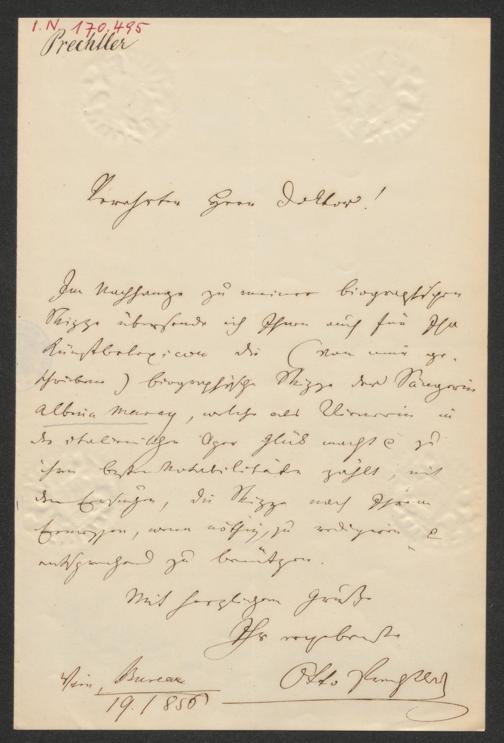 I. N. 170.495
Prechtler
Verehrter Herr Doktor!
Im Nachhange zu meiner biographischen
Skizze übersende ich Ihnen auch für Ihr
die (von mir ge-
schriebene) biographische Skizze der Sängerin
Albina Maray, welche als Wienerin in
der italienischen Oper Glück macht & zu
ihren besten Notabilitäten zählt, mit
dem Ersuchen, die Skizze nach Ihrem
Ermessen, wenn nöthig, zu redigiren &
entsprechend zu benützen.
Mit herzlichem Gruße
Ihr ergebenster
Otto Prechtler
Wien, Bureau
19. / 1856